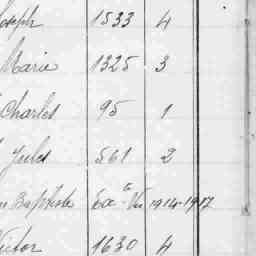 Joseph 1533 4
Marie 1325 3
Charles 95 1
Jules 561 2
Baptiste 1914-1917
Victor 1630 4